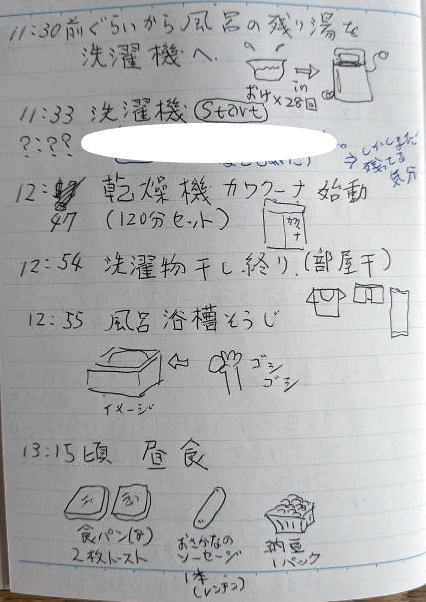 11:30前ぐらいから風呂の残り湯を
洗濯機へ
おけ×28回
in
11:33 洗濯機 Start
?:??
⇒しかしまだ
残ってる
気分
12:47 乾燥機カワクーナ 始動
(120分セット)
カワクーナ
12:54 洗濯物干し終り.(部屋干)
12:55 風呂浴槽そうじ
ゴシ
ゴシ
イメージ
13:15頃 昼食
食パン(8)
2枚トースト
おさかなの
ソーセージ
1本
(レンチン)
納豆
1パック